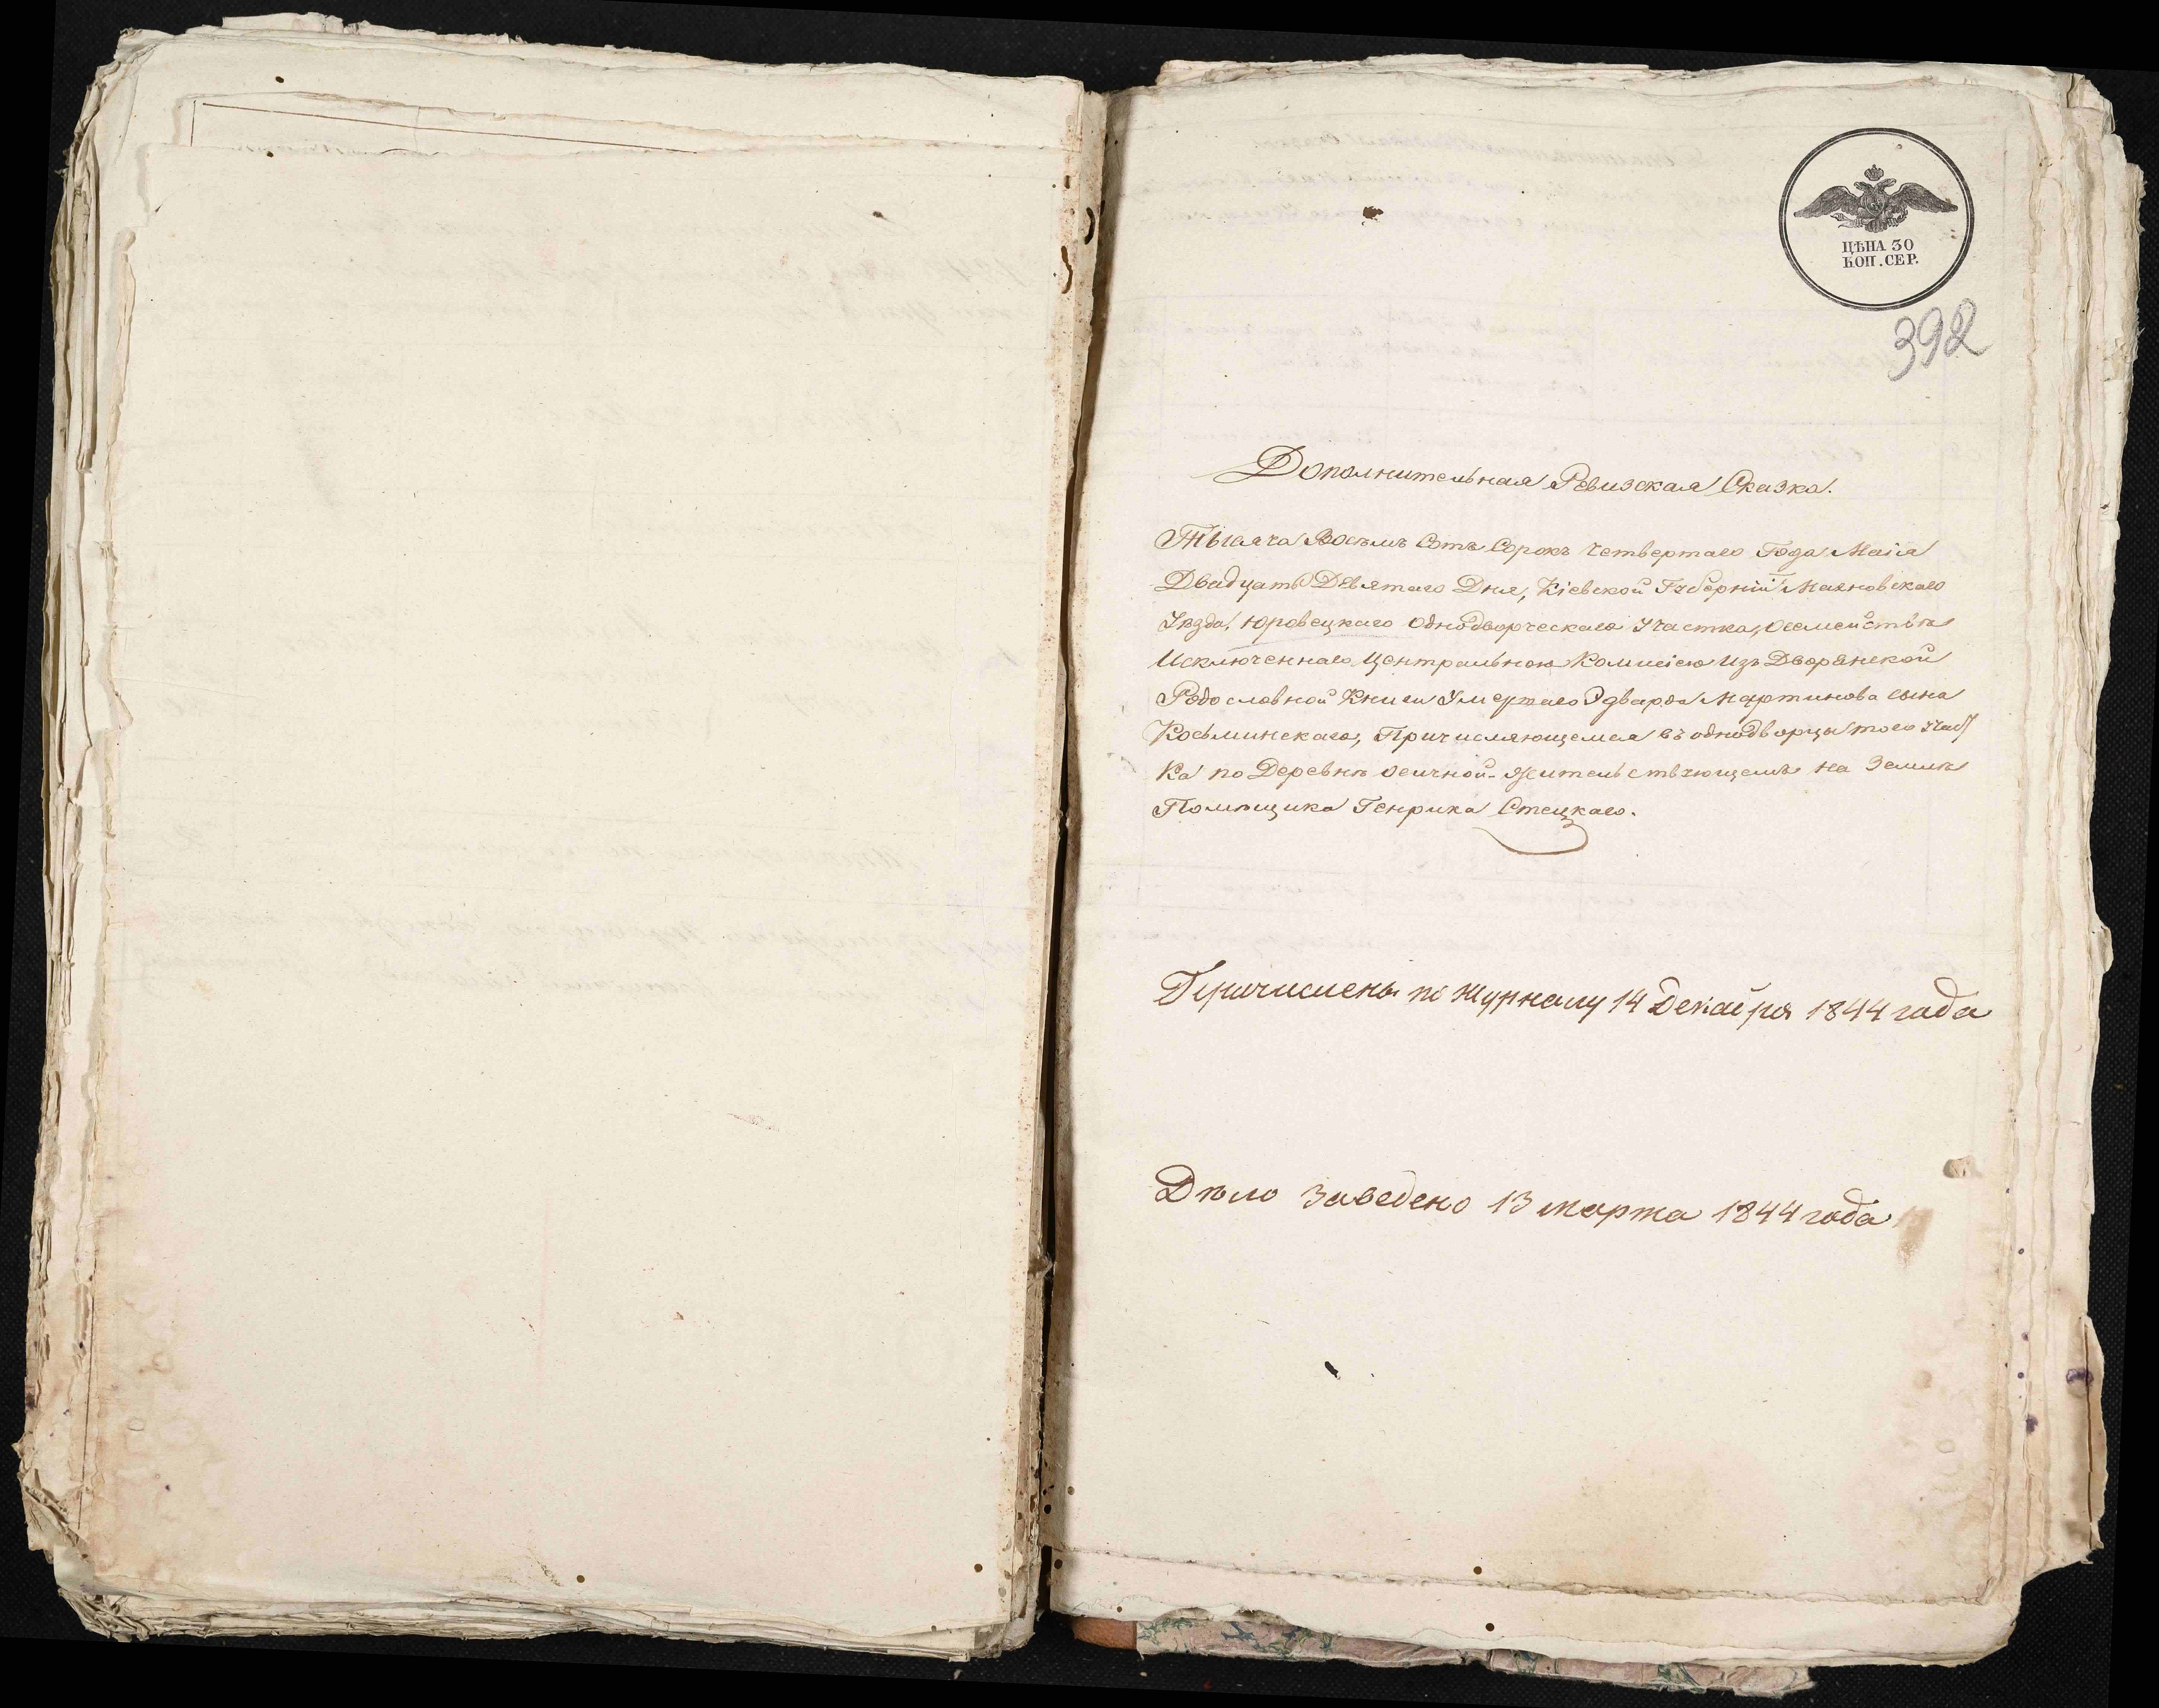 ЦѢНА 30
КОП. СЕР.
392
Дополнительная Ревизская Сказка.
Тысяча Восемь Сотъ Сорокъ четвертаго Года Маія
Двадцать Девятаго Дня, Кіевской Губерніи Махновскаго
Уѣзда, Юровецкаго Однодворческаго Участка, о семействѣ
Исключеннаго Центральною Коммисіею Изъ Дворянской
Родословной Книги Умершаго Эдварда Мартинова сына
Косьминскаго, Причисляющемся въ однодворцы того Учас
ка по Деревнѣ Осичной жительствующемъ на Землѣ
Помѣщика Генрика Стецкаго.
Причислены по журналу 14 Декабря 1844 года
Дѣло заведено 13 марта 1844 года